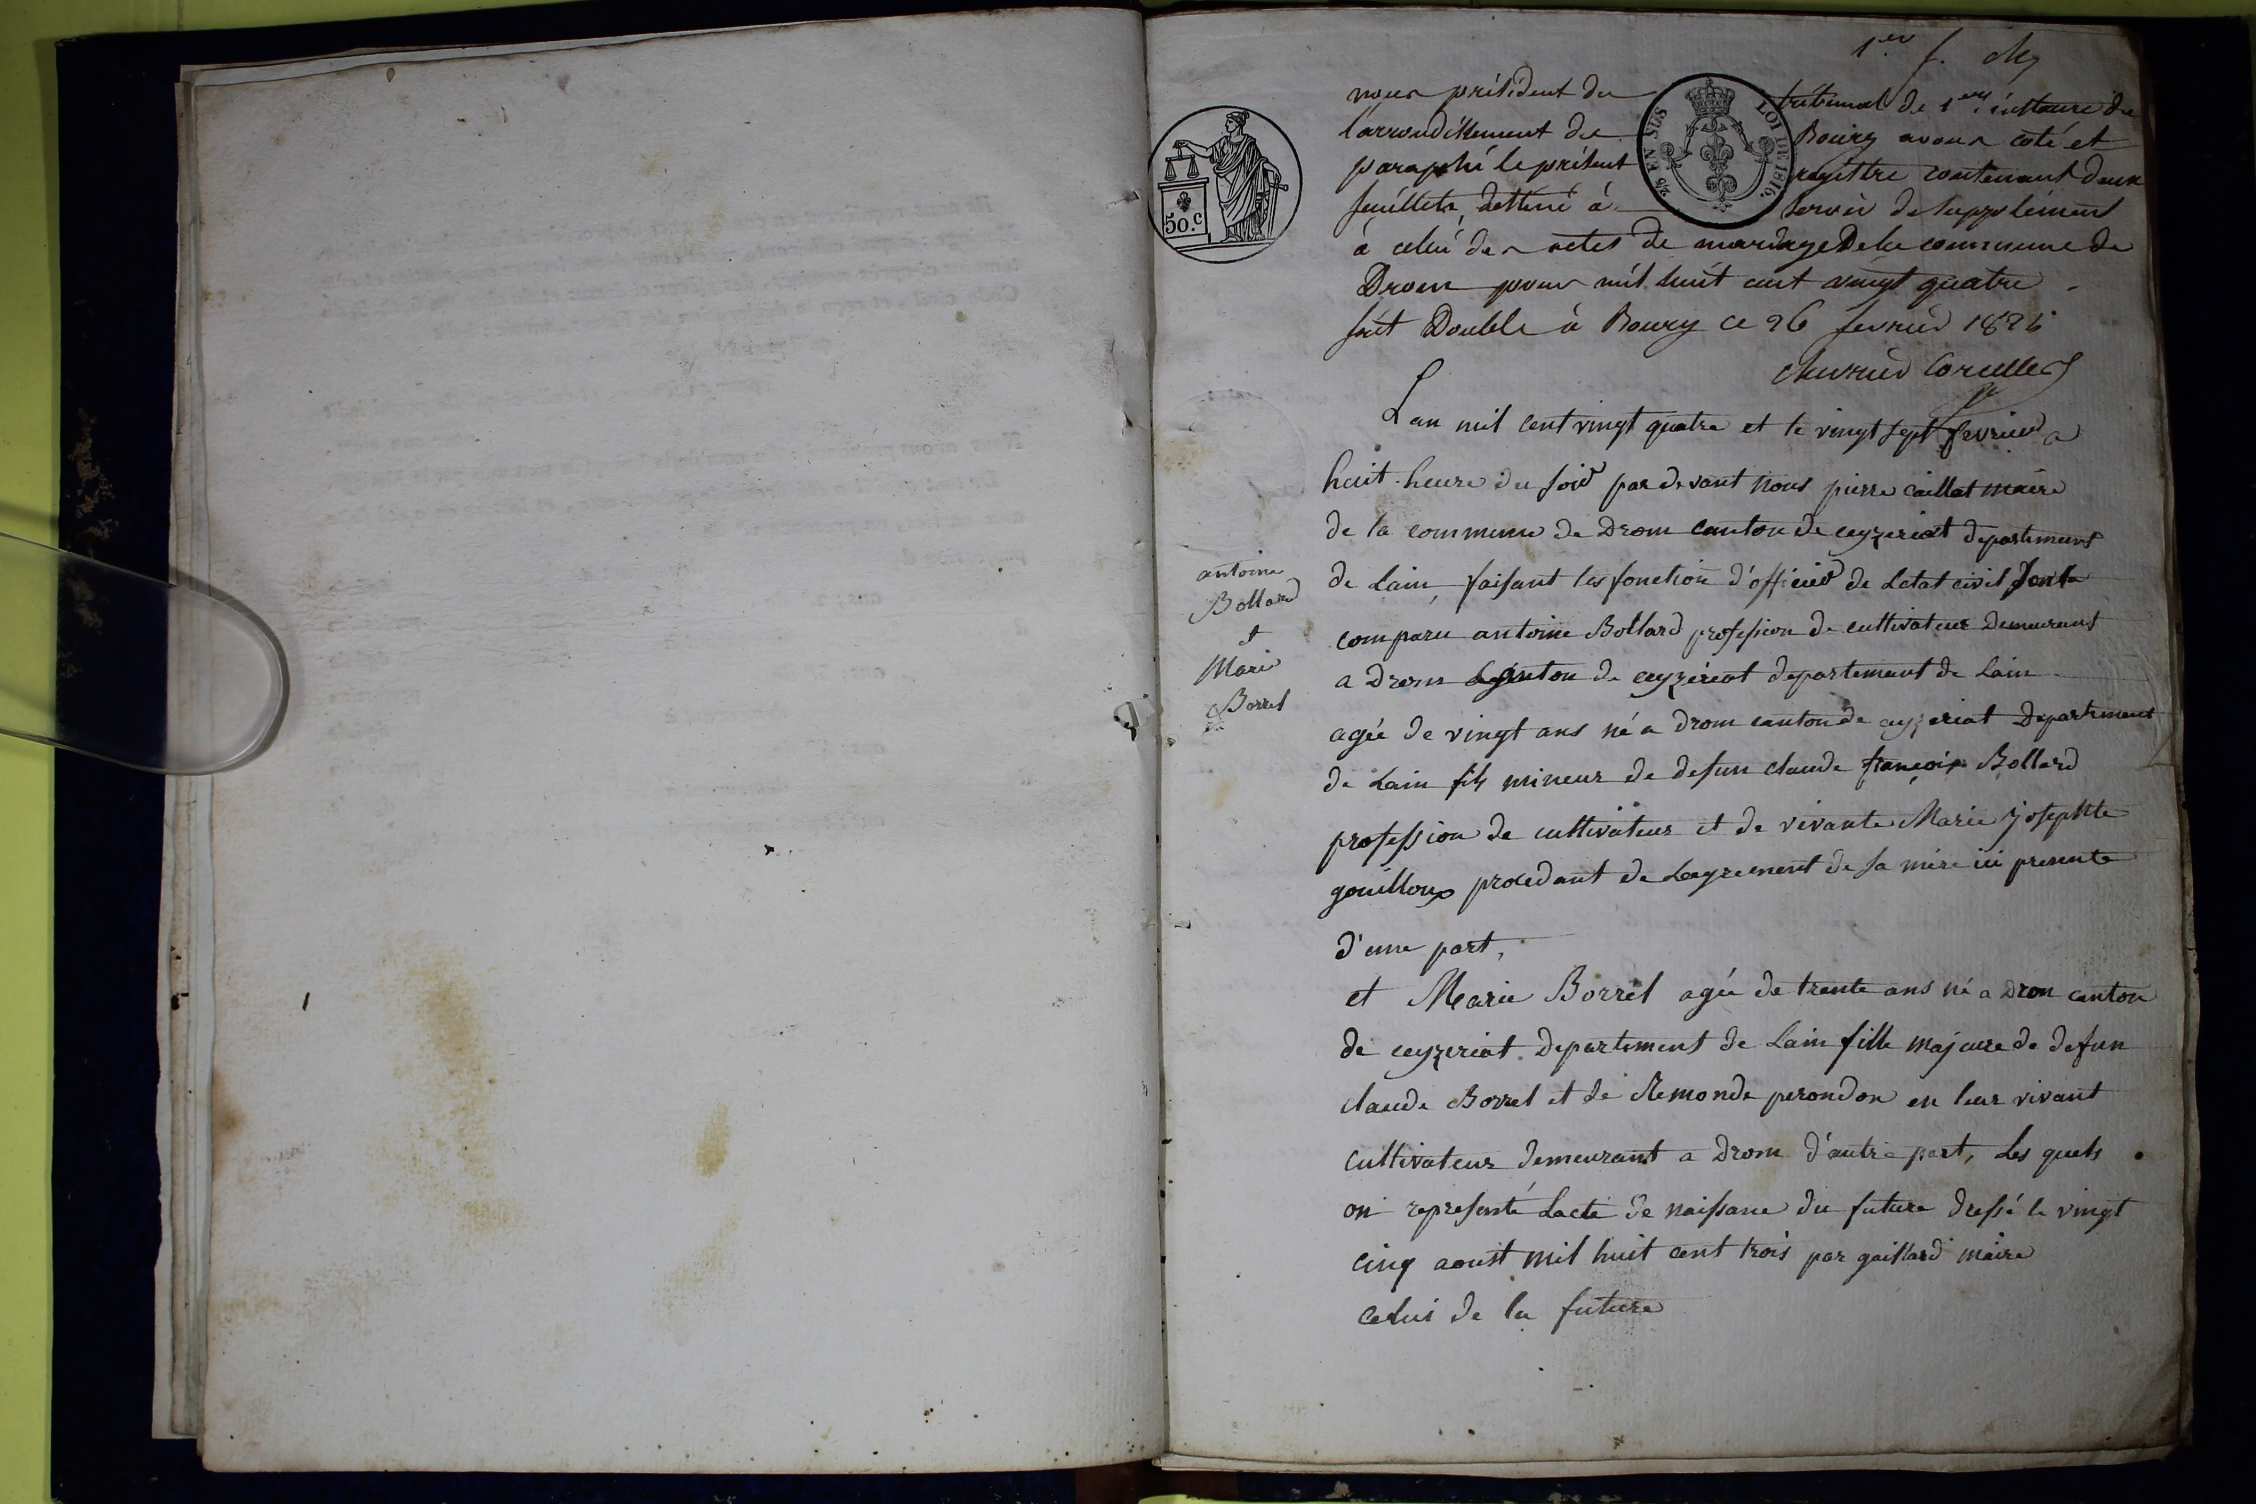 1er f.
nous président du tribunal de 1ere instance de
l'arrondissement de Bourg avons coté et
paraphé le présent registre contenant deux
feuillets, destiné à servir de supplément
à celui des actes de mariage De la commune de
Drom pour mil huit cent vingt quatre
fait Double à Bourg ce 26 fevrier 1824
50.c
25 EN SUS LOI DE 1816.
Lan mil cent vingt quatre et le vingt sept fevrier a
huit heure du soir par devant nous pierre caillat maire
de la commune de Drom canton de ceyzeriat departement
de Lain, faisant les fonction d'officier de Letat civil sont
comparu antoine Bollard profession de cultivateur Demeurant
a Drom canton de ceyzériat departement de Lain
agée de vingt ans né a Drom canton de ceyzeriat Departement
de Lain fils mineur de defun claude françois Bollard
profession de cultivateur et de vivante Marie josephte
gouilloux procedant de Lagrement de sa mère ici presente
d'une part,
antoine
Bollard
et
Marie
Borrel
et Marie Borrel agée de trente ans né a Drom canton
de ceyzeriat Departement de Lain fille majeure de defun
claude Borrel et de Remonde perondon en leur vivant
cultivateur demeurant a Drom d'autre part, Les quels
on represanté Lacte de naissane du future dressé le vingt
cinq aoust mil huit cent trois par gaillard maire
celui de la future